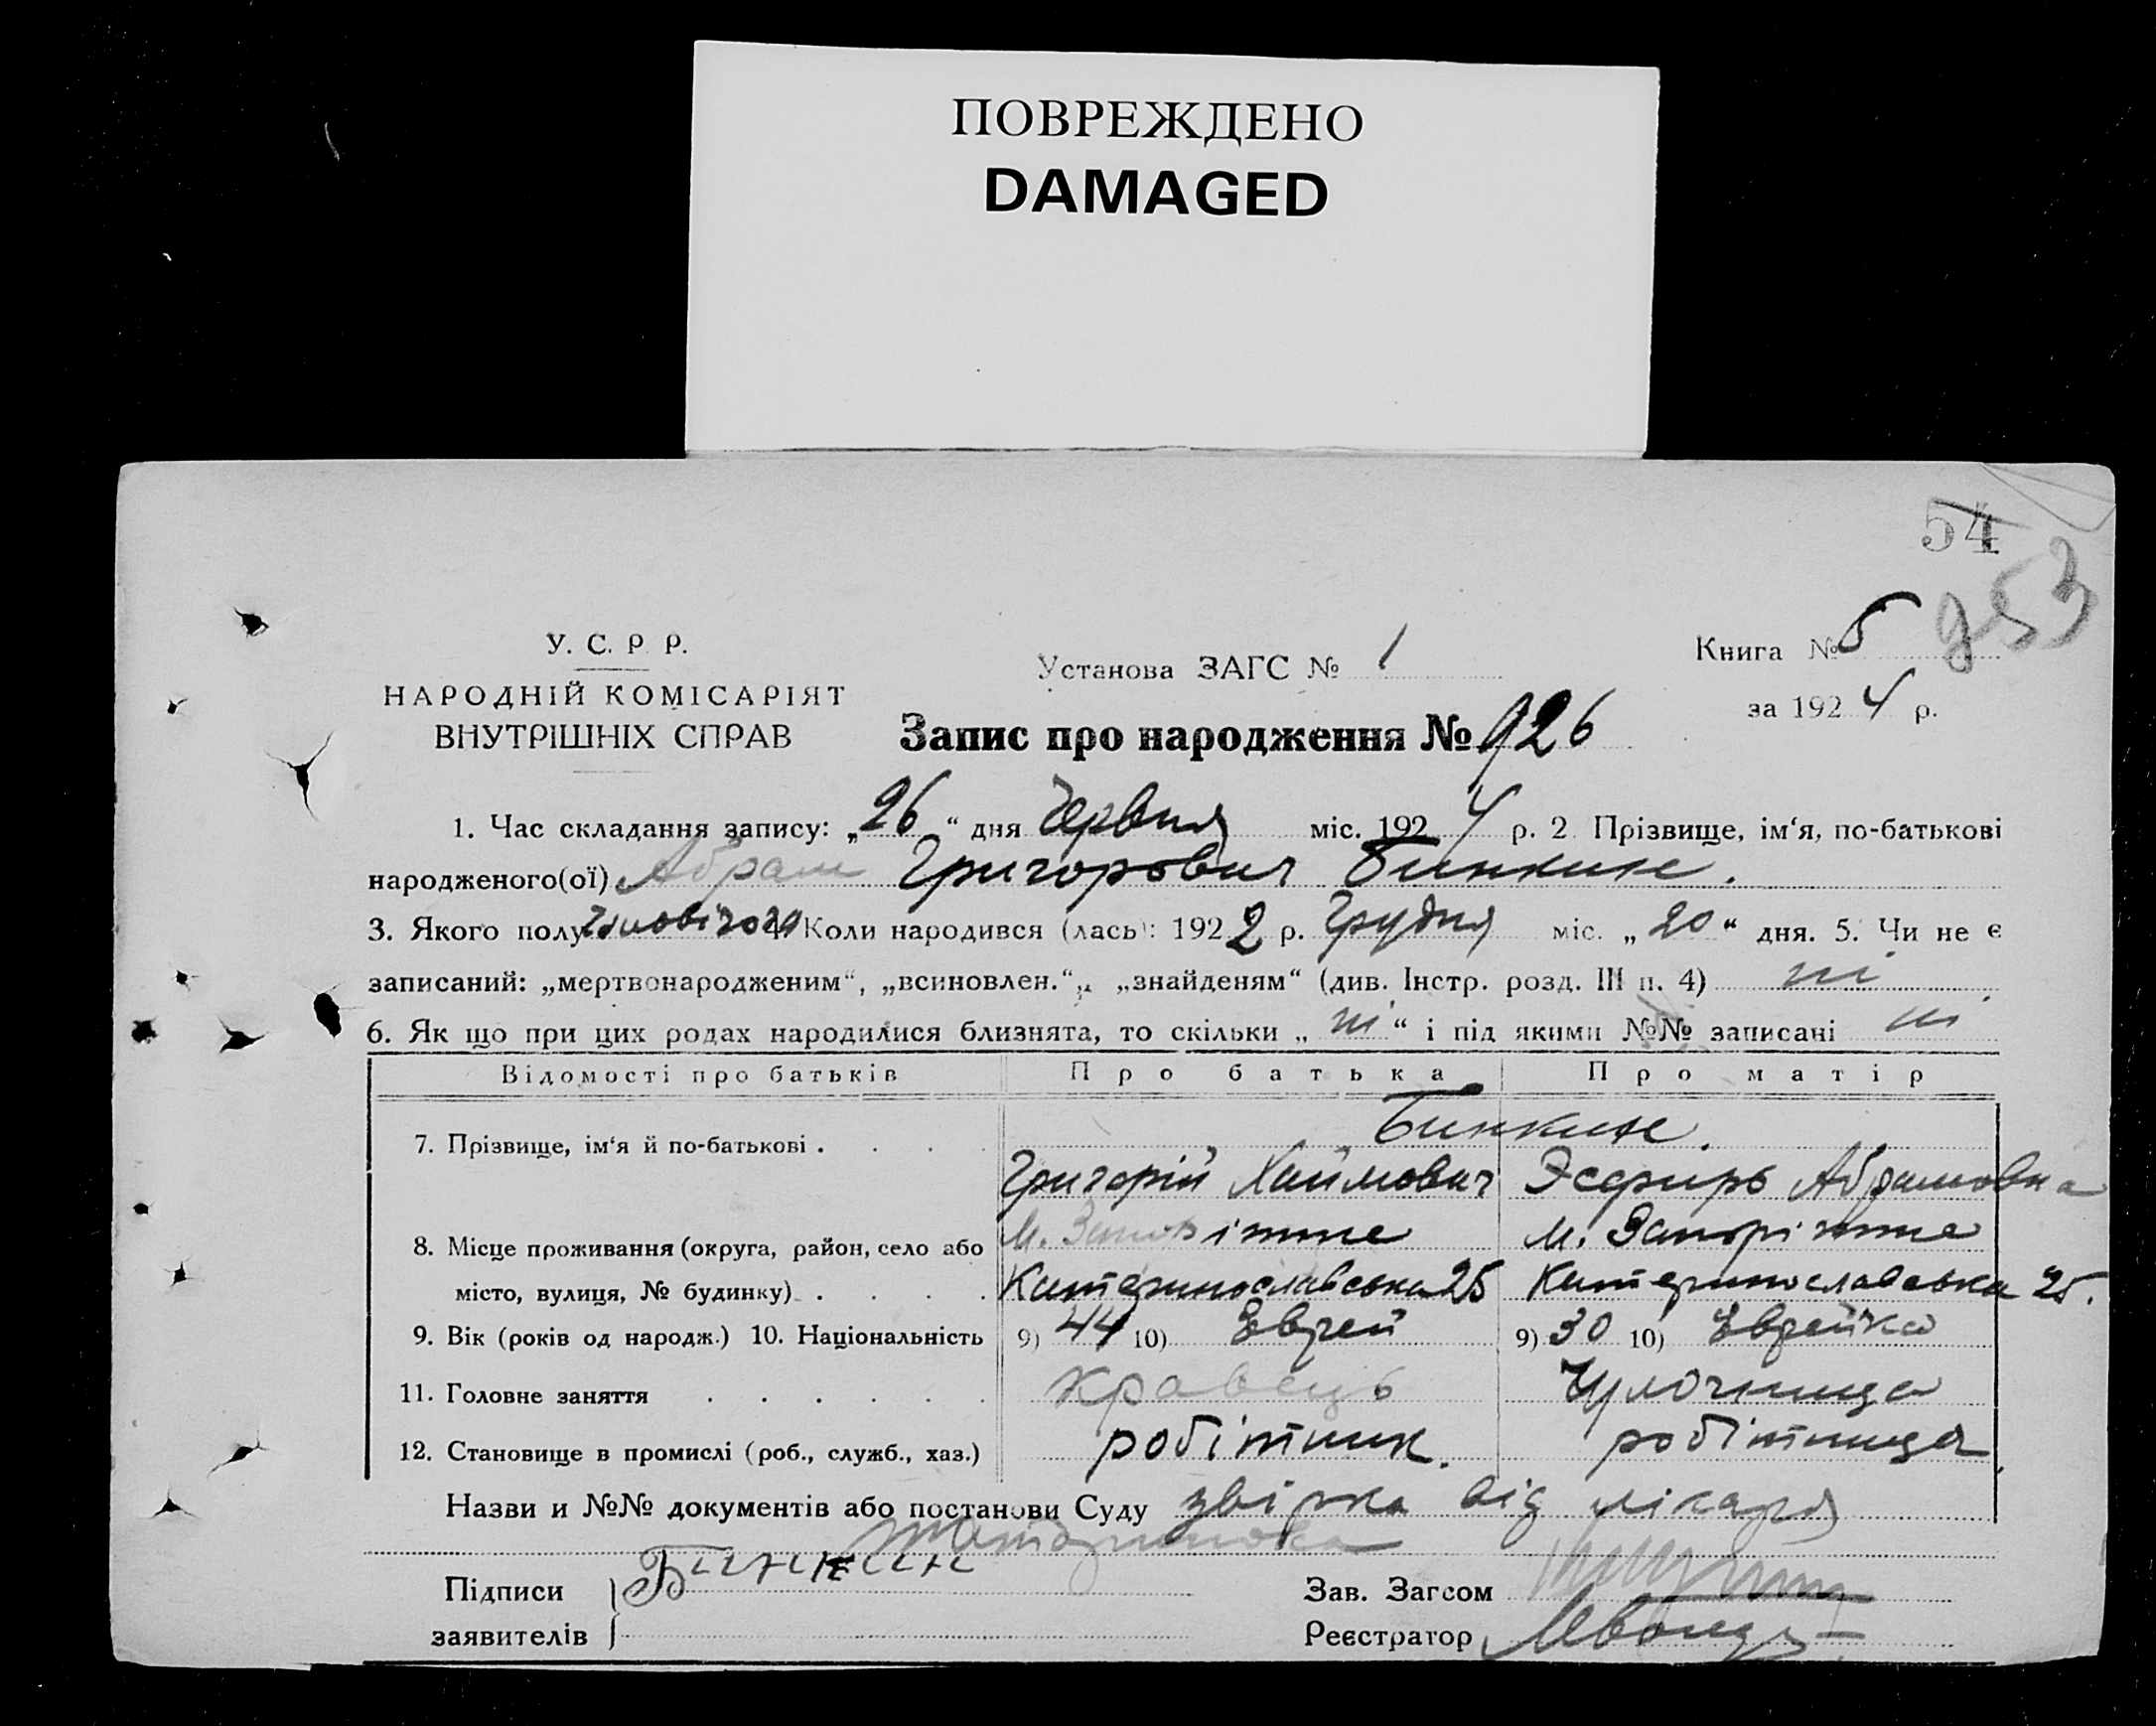 ПОВРЕЖДЕНО
DAMAGED
54
953
У. С. Р. Р.
НАРОДНІЙ КОМІСАРІЯТ
ВНУТРІШНІХ СПРАВ
Установа ЗАГС № 1
Книга № 5
за 1924 р.
Запис про народження № 926
1. Час складання запису: „26“ дня Червня міс. 1924 р. 2 Прізвище, ім‘я, по-батькові
народженого(ої) Абрам Григорович Бинкин.
3. Якого полу 4. Коли народився (лась): 1922 р. Грудня міс. „20“ дня. 5. Чи не є
записаний: „мертвонародженим“, „всиновлен.“, „знайденям“ (див. Інстр. розд. III п. 4) ні
6. Як що при цих родах народилися близнята, то скільки „ні“ і під якими №№ записані ні
Відомості про батьків Про батька Про матір
7. Прізвище, ім‘я й по-батькові . . . . Бинкин.
Григорій Хаймович Эсфирь Абрамовна
8. Місце проживання (округа, район, село або м. Запоріжже м. Запоріжже
місто, вулиця, № будинку) . . . . Катеринославська 25 Катеринославська 25.
9. Вік (років од народж.) 10. Національність 9) 44 10) Еврей 9) 30 10) Еврейка
11. Головне заняття . . . . . . Кравець
12. Становище в промислі (роб., служб., хаз.) робітник. робітниця.
Назви и №№ документів або постанови Суду від лікаря
Підписи Бинкин Зав. Загсом
заявителів Реєстратор